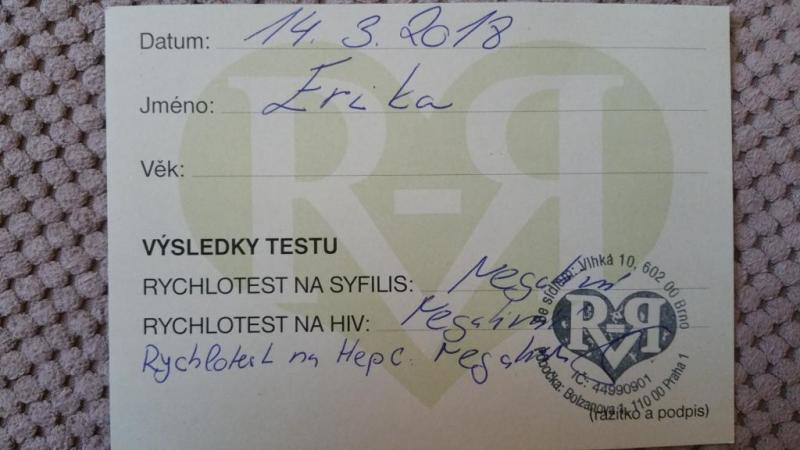 Datum: 14. 3. 2018
Jméno: Erika
Věk:
R-R
VÝSLEDKY TESTU
RYCHLOTEST NA SYFILIS: Negativní
RYCHLOTEST NA HIV: Negativní
Rychlotest na Hepc. Negativní
se sídlem: Vlhká 10, 602 00 Brno
R-R
IČ: 44990901
pobočka: Bolzanova 1, 110 00 Praha 1
(razítko a podpis)